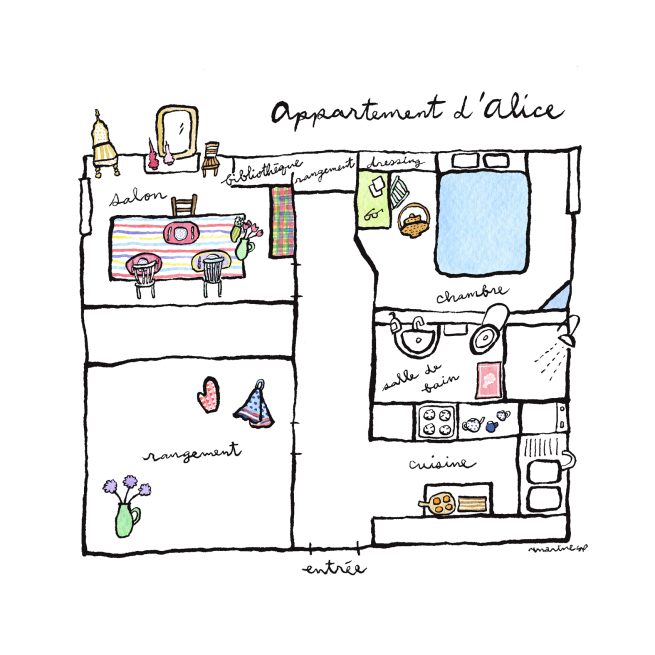 appartement d'Alice
bibliothèque
rangement
dressing
salon
chambre
salle de
bain
rangement
cuisine
entrée